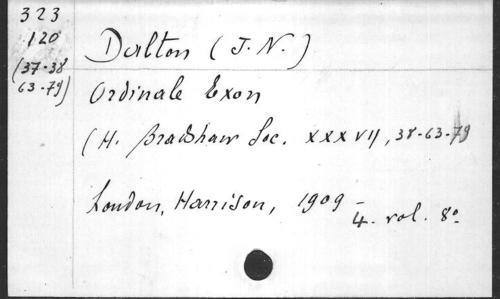 323
120
(37-38
63-79)
Dalton (J. N.)
Ordinale Exon
(H. Bradshaw Soc. XXXVII, 38-63-79
London, Harrison, 1909 -
4. vol. 8º